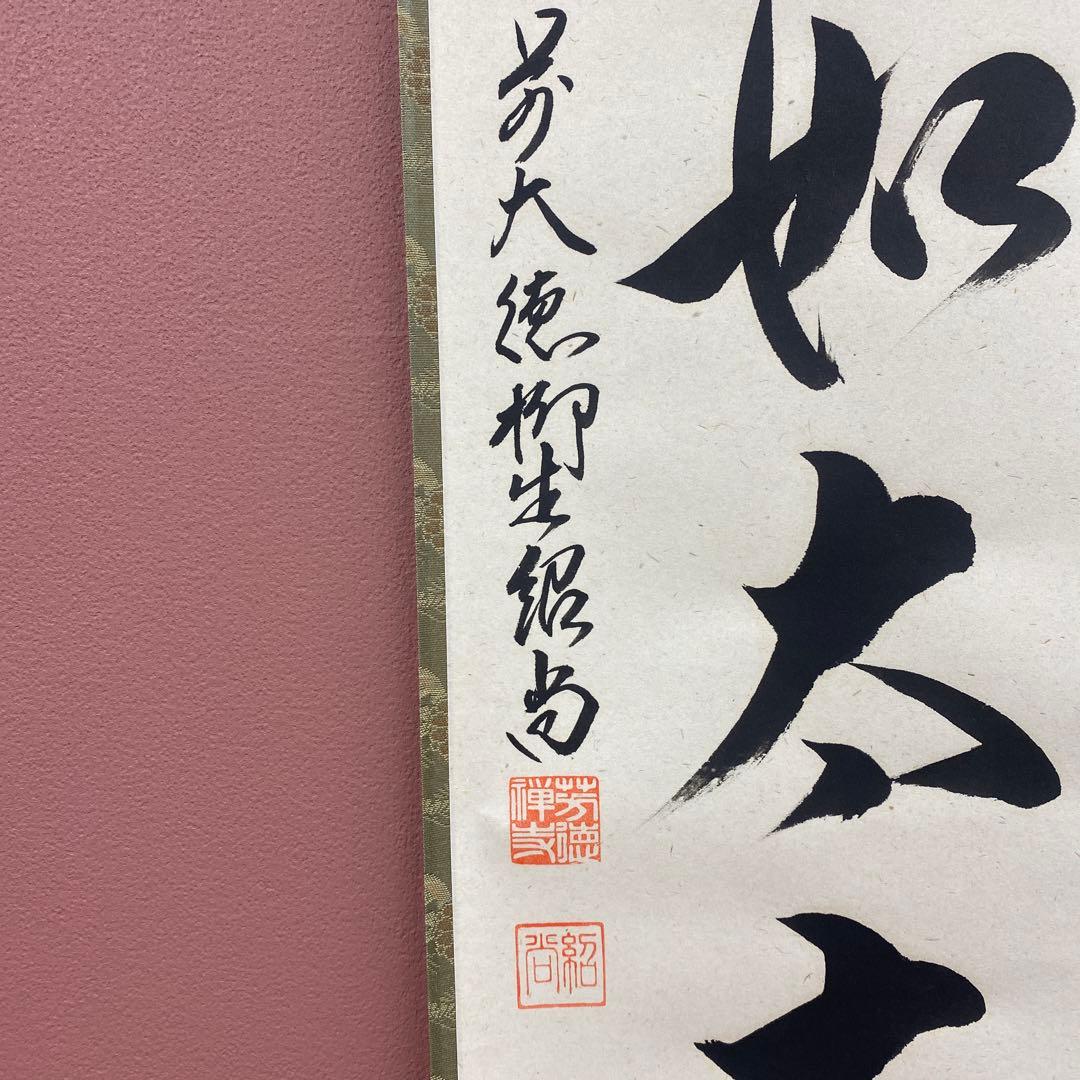 如太
前大徳柳生紹尚
芳徳
禅寺
紹尚